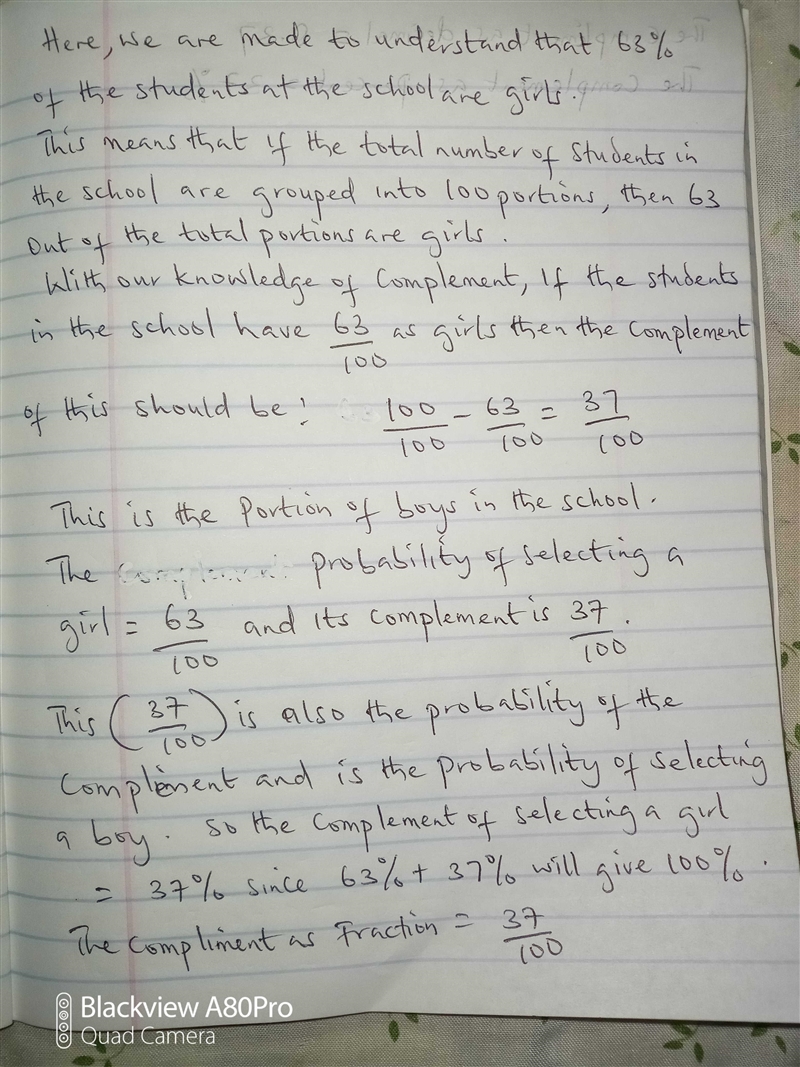 Here, we are made to understand that 63%
of the students at the school are girls.
This means that if the total number of students in
the school are grouped into 100 portions, then 63
out of the total portions are girls.
With our knowledge of Complement, If the students
in the school have 63/100 as girls then the Complement
of this should be: 100/100 - 63/100 = 37/100
This is the Portion of boys in the school.
The probability of selecting a
girl = 63/100 and its complement is 37/100.
This (37/100) is also the probability of the
Complement and is the probability of selecting
a boy. So the Complement of selecting a girl
= 37% since 63% + 37% will give 100%.
The Compliment as Fraction = 37/100
Blackview A80Pro
Quad Camera